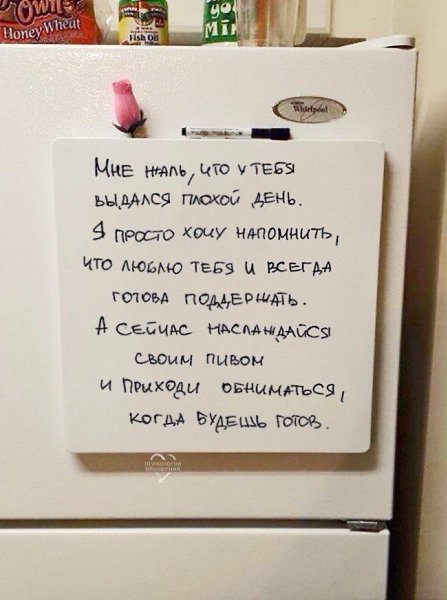 Own's
Honey Wheat
Fish Oil
Whirlpool
Мне жаль, что у тебя
выдался плохой день.
Я просто хочу напомнить,
что люблю тебя и всегда
готова поддержать.
А сейчас наслаждайся
своим пивом
и приходи обниматься,
когда будешь готов.
ПСИХОЛОГИЯ
ОТНОШЕНИЙ